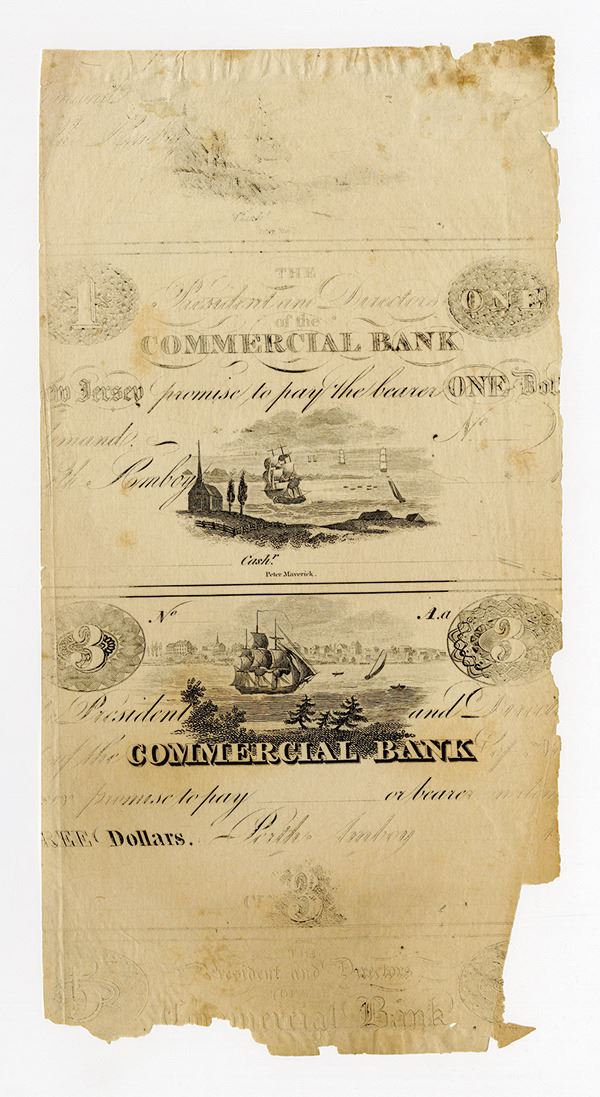 Cashr
1 ONE
THE
President and Directors
of the
COMMERCIAL BANK
Jersey promise to pay the bearer ONE
demand. No
Amboy
Cashr.
Peter Maverick.
No A.a
3 3
President and
of the COMMERCIAL BANK of
promise to pay or bearer
Dollars. Perth Amboy
3
THE
President and Directors
Commercial Bank